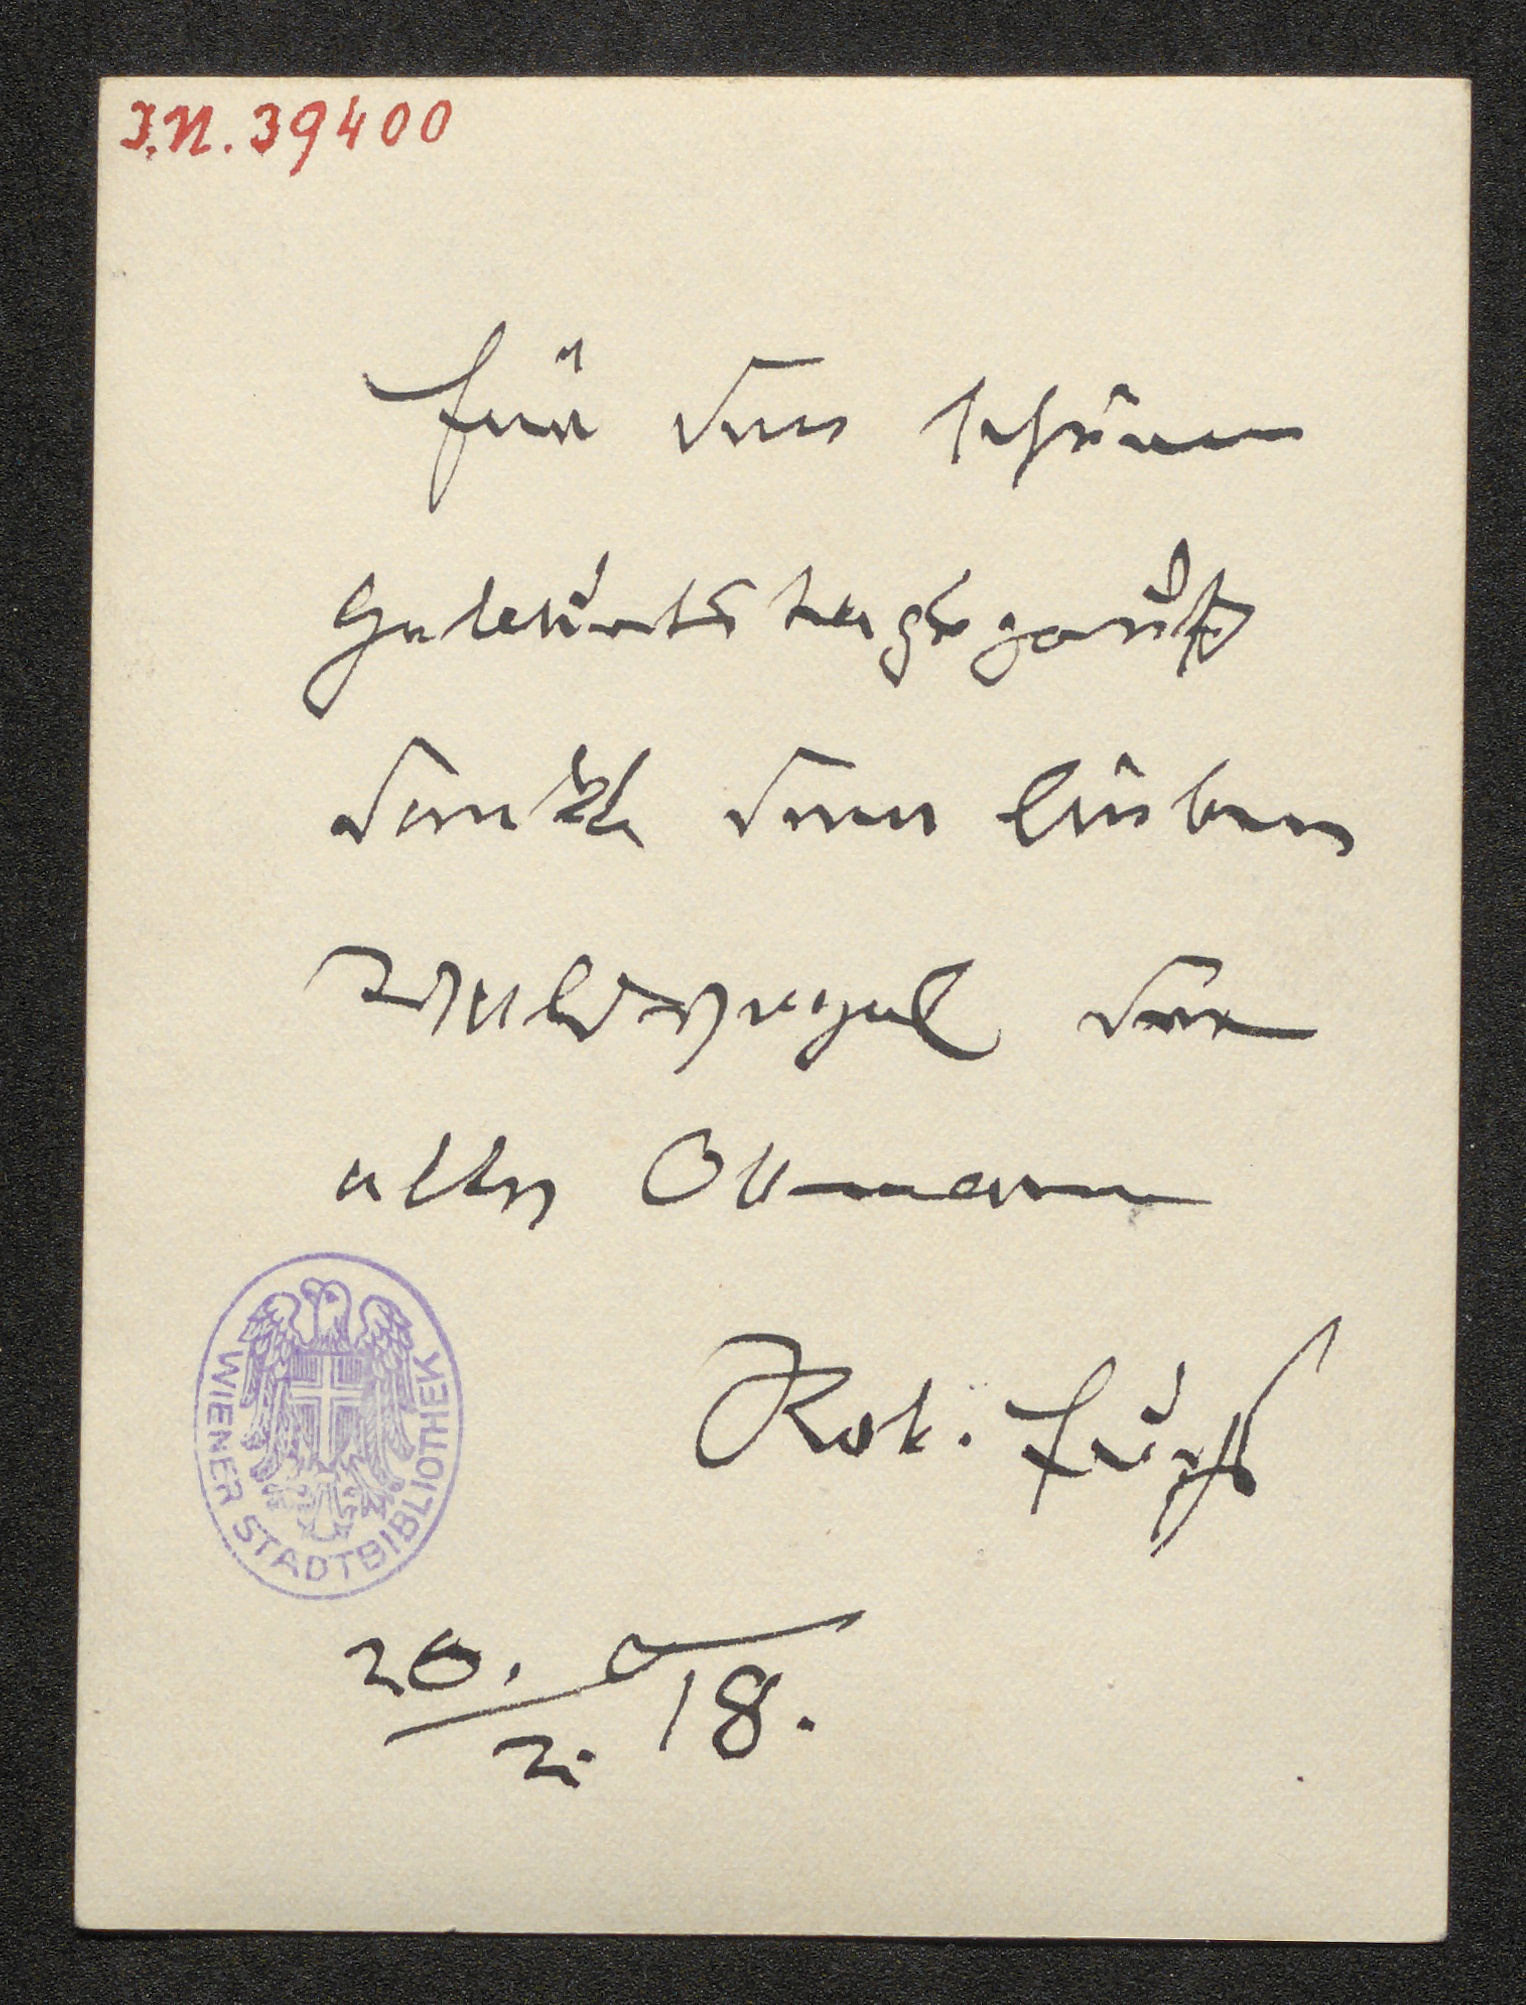 I.N. 39400
für den schönen
Geburtstagsgruß
dankt dem lieben
Waldvogel der
alte
Rob. Fuchs
WIENER STADTBIBLIOTHEK
20.
2. 18.